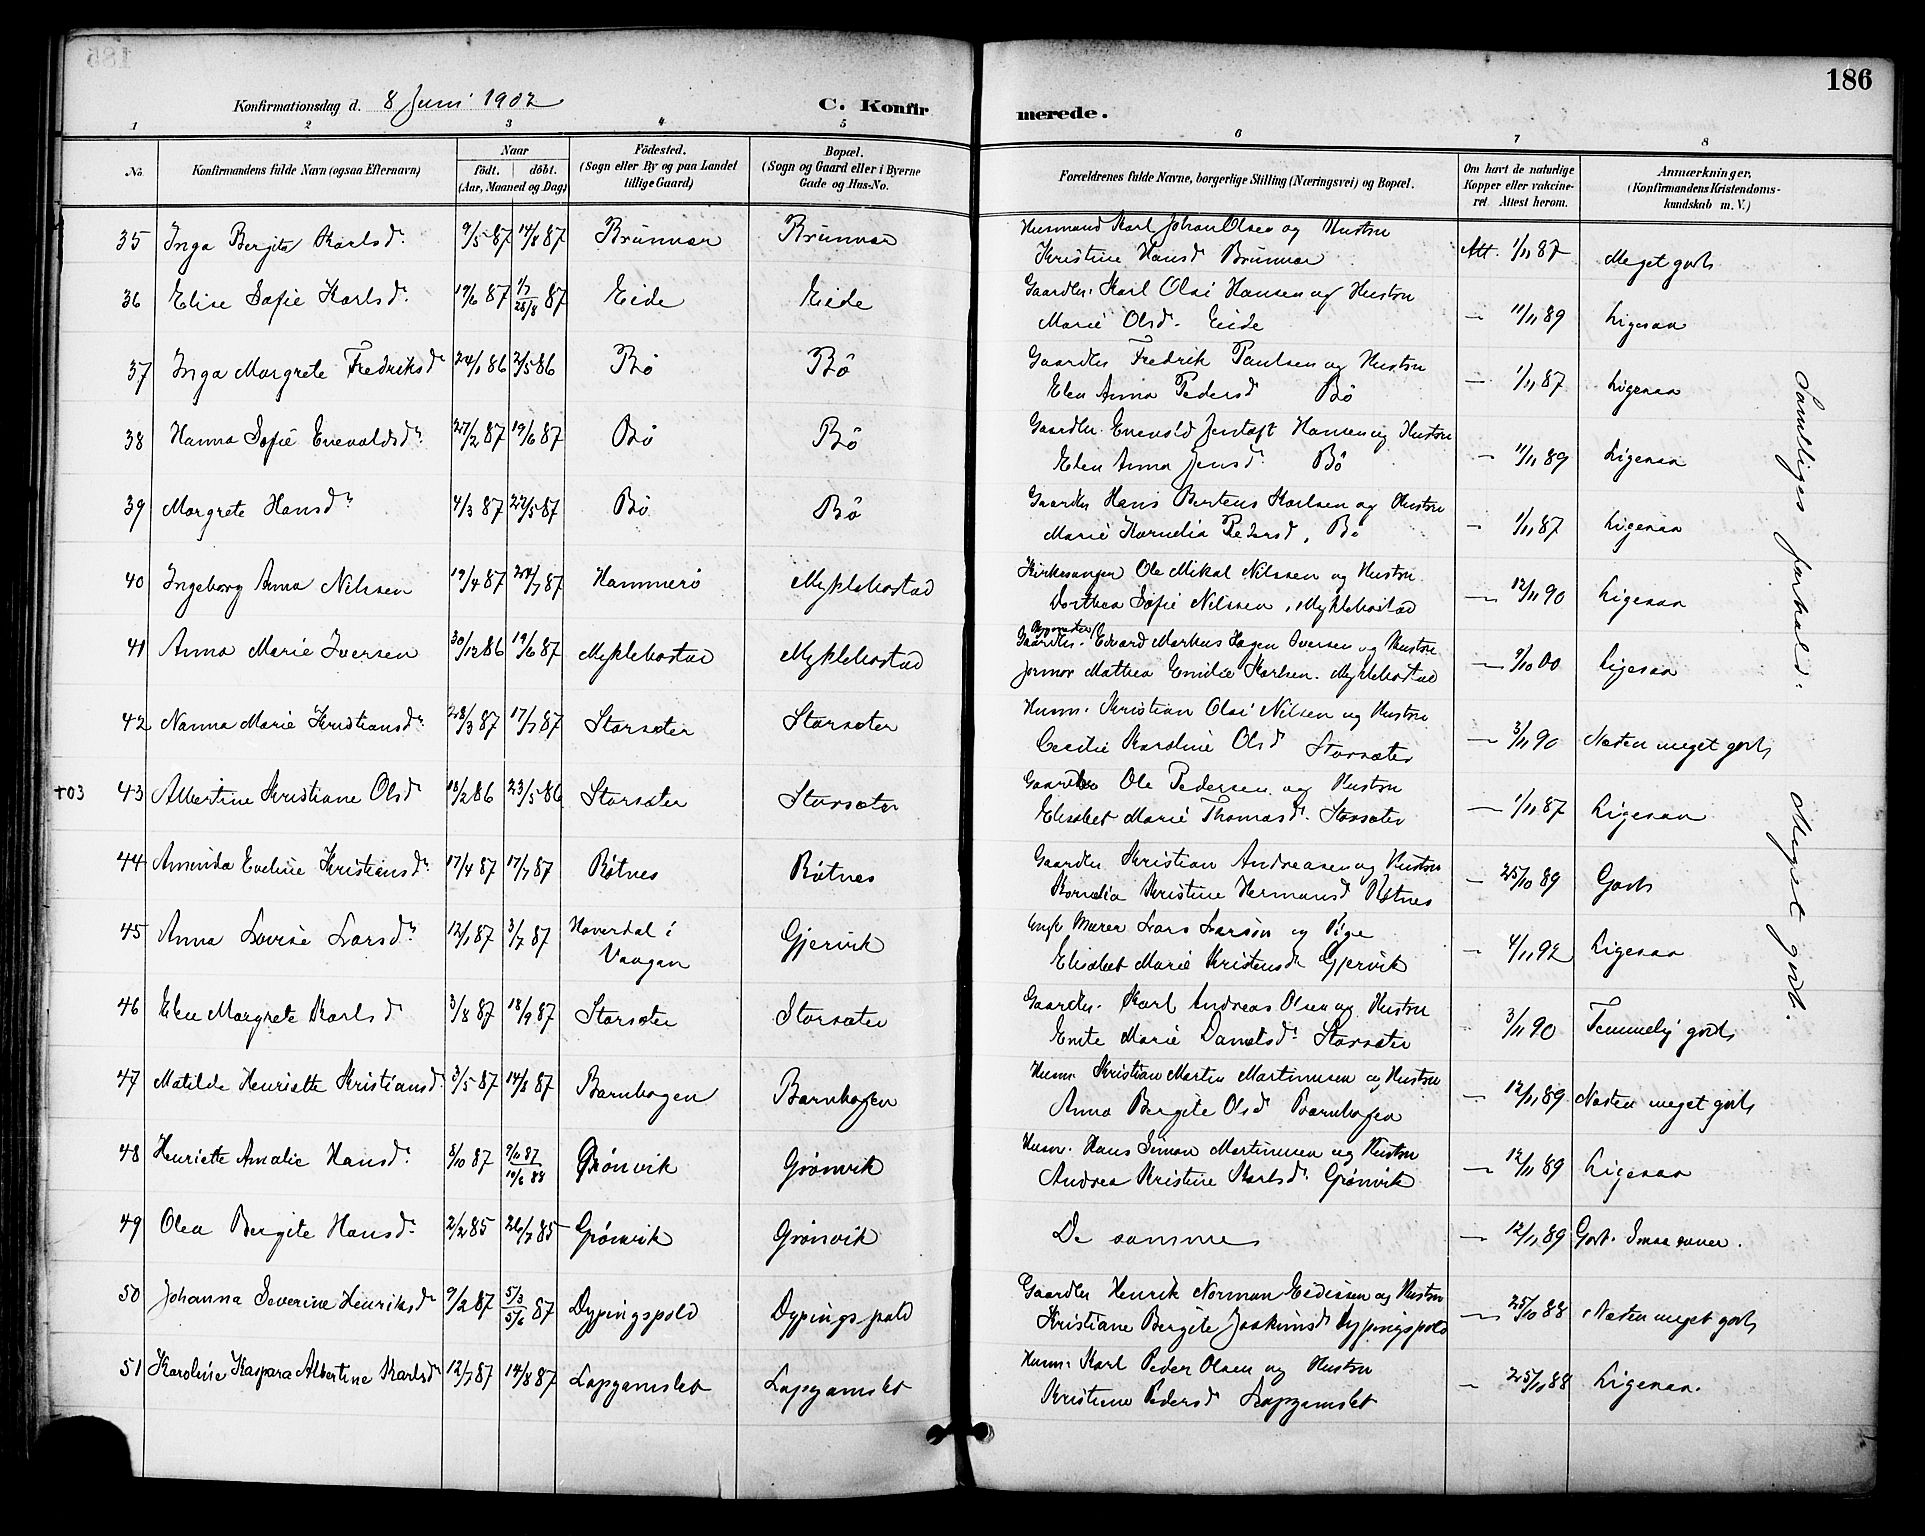 186
Konfirmationsdag d. 8 Juni 1902 C. Konfirmerede.
1 2 3 4 5 6 7 8
No. Konfirmandens fulde Navn (ogsaa Efternavn) Naar födt. döbt. (Aar, Maaned og Dag) Födested. (Sogn eller By og paa Landet tillige Gaard) Bopæl. (Sogn og Gaard eller i Byerne Gade og Hus-No. Forældrenes fulde Navne, borgerlige Stilling (Næringsvei) og Bopæl. Om havt de naturlige Kopper eller vakcineret. Attest herom. Anmærkninger. (Konfirmandens Kristendomskundskab m. V.)
35 Inga Bergita Karlsdr. 9/5 87 14/8 87 Brunvær Brunvær Husmand Karl Johan Olsen og Hustru
Kristine Hansd Brunvær Att. 1/11 87 Meget godt
36 Elise Sofie Karlsdr. 19/6 87 1/7 28/8 87 Eide Eide Gaardbr. Karl Olai Hansen og Hustru
Marie Olsd. Eide — 11/11 89 Ligesaa
37 Inga Margrete Fredriksdr 24/1 86 2/5 86 Bø Bø Gaardbr Fredrik Paulsen og Hustru
Elen Anna Pedersd Bø — 1/11 87 Ligesaa
38 Hanna Sofie Enevoldsdr. 27/2 87 19/6 87 Bø Bø Gaardbr. Enevold Jentoft Hansen og Hustru
Elen Anna Jensd. Bø — 11/11 89 Ligesaa
39 Margrete Hansdr. 4/3 87 22/5 87 Bø Bø Gaardbr Hans Bertens Karlsen og Hustru
Marie Kornelia Pedersd, Bø — 1/11 87 Ligesaa
40 Ingeborg Anna Nilssen 19/4 87 24/7 87 Hammerø Myklebostad Kirkesanger Ole Mikal Nilssen og Hustru
Dorthea Sofie Nilssen, Myklebostad — 12/11 90 Ligesaa
41 Anna Marie Iversen 30/12 86 19/6 87 Myklebostad Myklebostad Gaardbr. Edvard Markus Hagen Iversen og Hustru
Mathea Emilie Karlsen. Myklebostad — 9/10 00 Ligesaa
42 Nanna Marie Kristiansdr. 28/3 87 17/7 87 Storsæter Storsæter Husm. Kristian Olai Nilsen og Hustru
Cecilie Karoline Olsd Storsæter — 3/11 90 Næsten meget godt
+03 43 Albertine Kristiane Olsdr 18/2 86 23/5 86 Storsæter Storsæter Gaardbr Ole Pedersen og Hustru
Elisabet Marie Thomasd. Storsæter — 1/11 87 Ligesaa
44 Amanda Eveline Kristiansdr. 17/4 87 17/7 87 Røtnes Røtnes Gaardbr Kristian Andreasen og Hustru
Kornelia Kristine Hermansd Røtnes — 25/10 89 Godt
45 Anna Lovise Larsdr. 12/1 87 3/7 87 Hoverdal i Vaagan Gjervik Ungk. Murer Lars Larsson og Pige
Elisabet Marie Kristensd Gjervik — 4/11 92 Ligesaa
46 Elen Margrete Karlsd 3/8 87 18/9 87 Storsæter Storsæter Gaardbr. Karl Andreas Olsen og Hustru
Marie Danielsdr. Storsæter 3/11 90 Temmelig godt
47 Matilde Henriette Kristiansd. 3/5 87 14/8 87 Barnhagen Barnhagen Husm. Kristian Martin Martinusen og Hustru
Anna Bergite Olsd Barnhagen — 12/11 89 Næsten meget godt
48 Henriette Amalie Hansdr. 8/10 87 9/10 87 10/6 88 Grønvik Grønvik Husm. Hans Simon Martinusen og Hustru
Andrea Kristine Karlsdr. Grønvik — 12/11 89 Ligesaa
49 Olea Bergite Hansdr. 2/2 85 26/7 85 Grønvik Grønvik De samme — 12/11 89 Godt. Smaa evner.
50 Johanna Severine Henriksdr 9/2 87 5/3 5/6 87 Dypingspold Dypingspold Gaardbr Henrik Norman Eidissen og Hustru
Kristiane Bergite Joakimsd Dypingspold — 25/10 88 Næsten meget godt
51 Karoline Kaspara Albertine Karlsdr 12/7 87 14/8 87 Lapgamslet Lapgamslet Husm. Karl Peder Olsen og Hustru
Kristine Pedersd Lapgamslet — 25/11 88 Ligesaa.
Samtliges forhold: Meget godt.